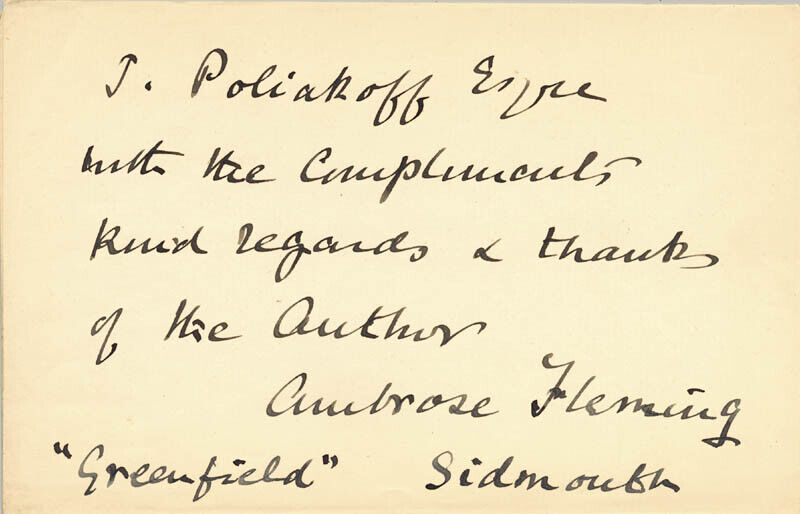 J. Poliakoff Esqre
with the Compliments
kind regards & thanks
of the Author
Ambrose Fleming
"Greenfield" Sidmouth